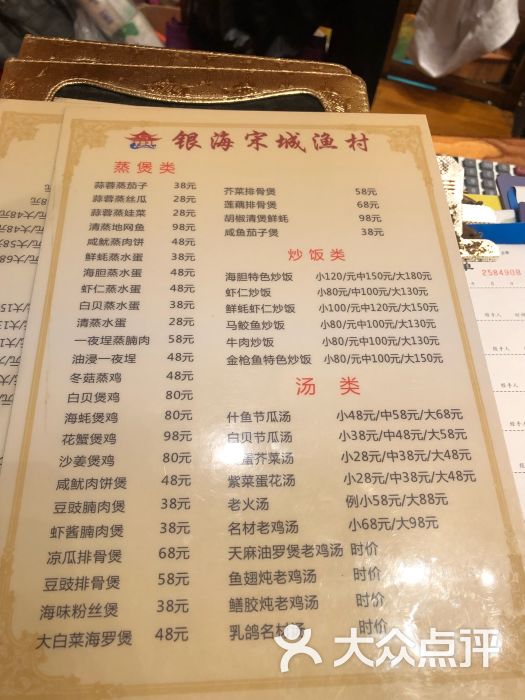 银海宋城渔村
蒸煲类
蒜蓉蒸茄子 38元
蒜蓉蒸丝瓜 28元
蒜蓉蒸娃菜 28元
清蒸地网鱼 98元
咸鱿蒸肉饼 48元
鲜蚝蒸水蛋 38元
海胆蒸水蛋 48元
虾仁蒸水蛋 48元
白贝蒸水蛋 38元
清蒸水蛋 28元
一夜埕蒸腩肉 58元
油浸一夜埕 48元
冬菇蒸鸡 48元
白贝煲鸡 80元
海蚝煲鸡 80元
花蟹煲鸡 98元
沙姜煲鸡 80元
咸鱿肉饼煲 48元
豆豉腩肉煲 38元
虾酱腩肉煲 38元
凉瓜排骨煲 68元
豆豉排骨煲 58元
海味粉丝煲 38元
大白菜海罗煲 48元
芥菜排骨煲 58元
莲藕排骨煲 68元
胡椒清煲鲜蚝 98元
咸鱼茄子煲 38元
炒饭类
海胆特色炒饭 小120/元中150元/大180元
虾仁炒饭 小80元/中100元/大130元
鲜蚝虾仁炒饭 小100/元中120元/大150元
马鲛鱼炒饭 小80/元中100元/大130元
牛肉炒饭 小80/元中100元/大130元
金枪鱼特色炒饭 小80元/中100元/大150元
汤类
什鱼节瓜汤 小48元/中58元/大68元
白贝节瓜汤 小38元/中48元/大58元
蛋芥菜汤 小28元/中38元/大48元
紫菜蛋花汤 小28元/中38元/大48元
老火汤 例小58元/大88元
名材老鸡汤 小68元/大98元
天麻油罗煲老鸡汤 时价
鱼翅炖老鸡汤 时价
鳝胶炖老鸡汤 时价
乳鸽名材汤 时价
2584908
大众点评